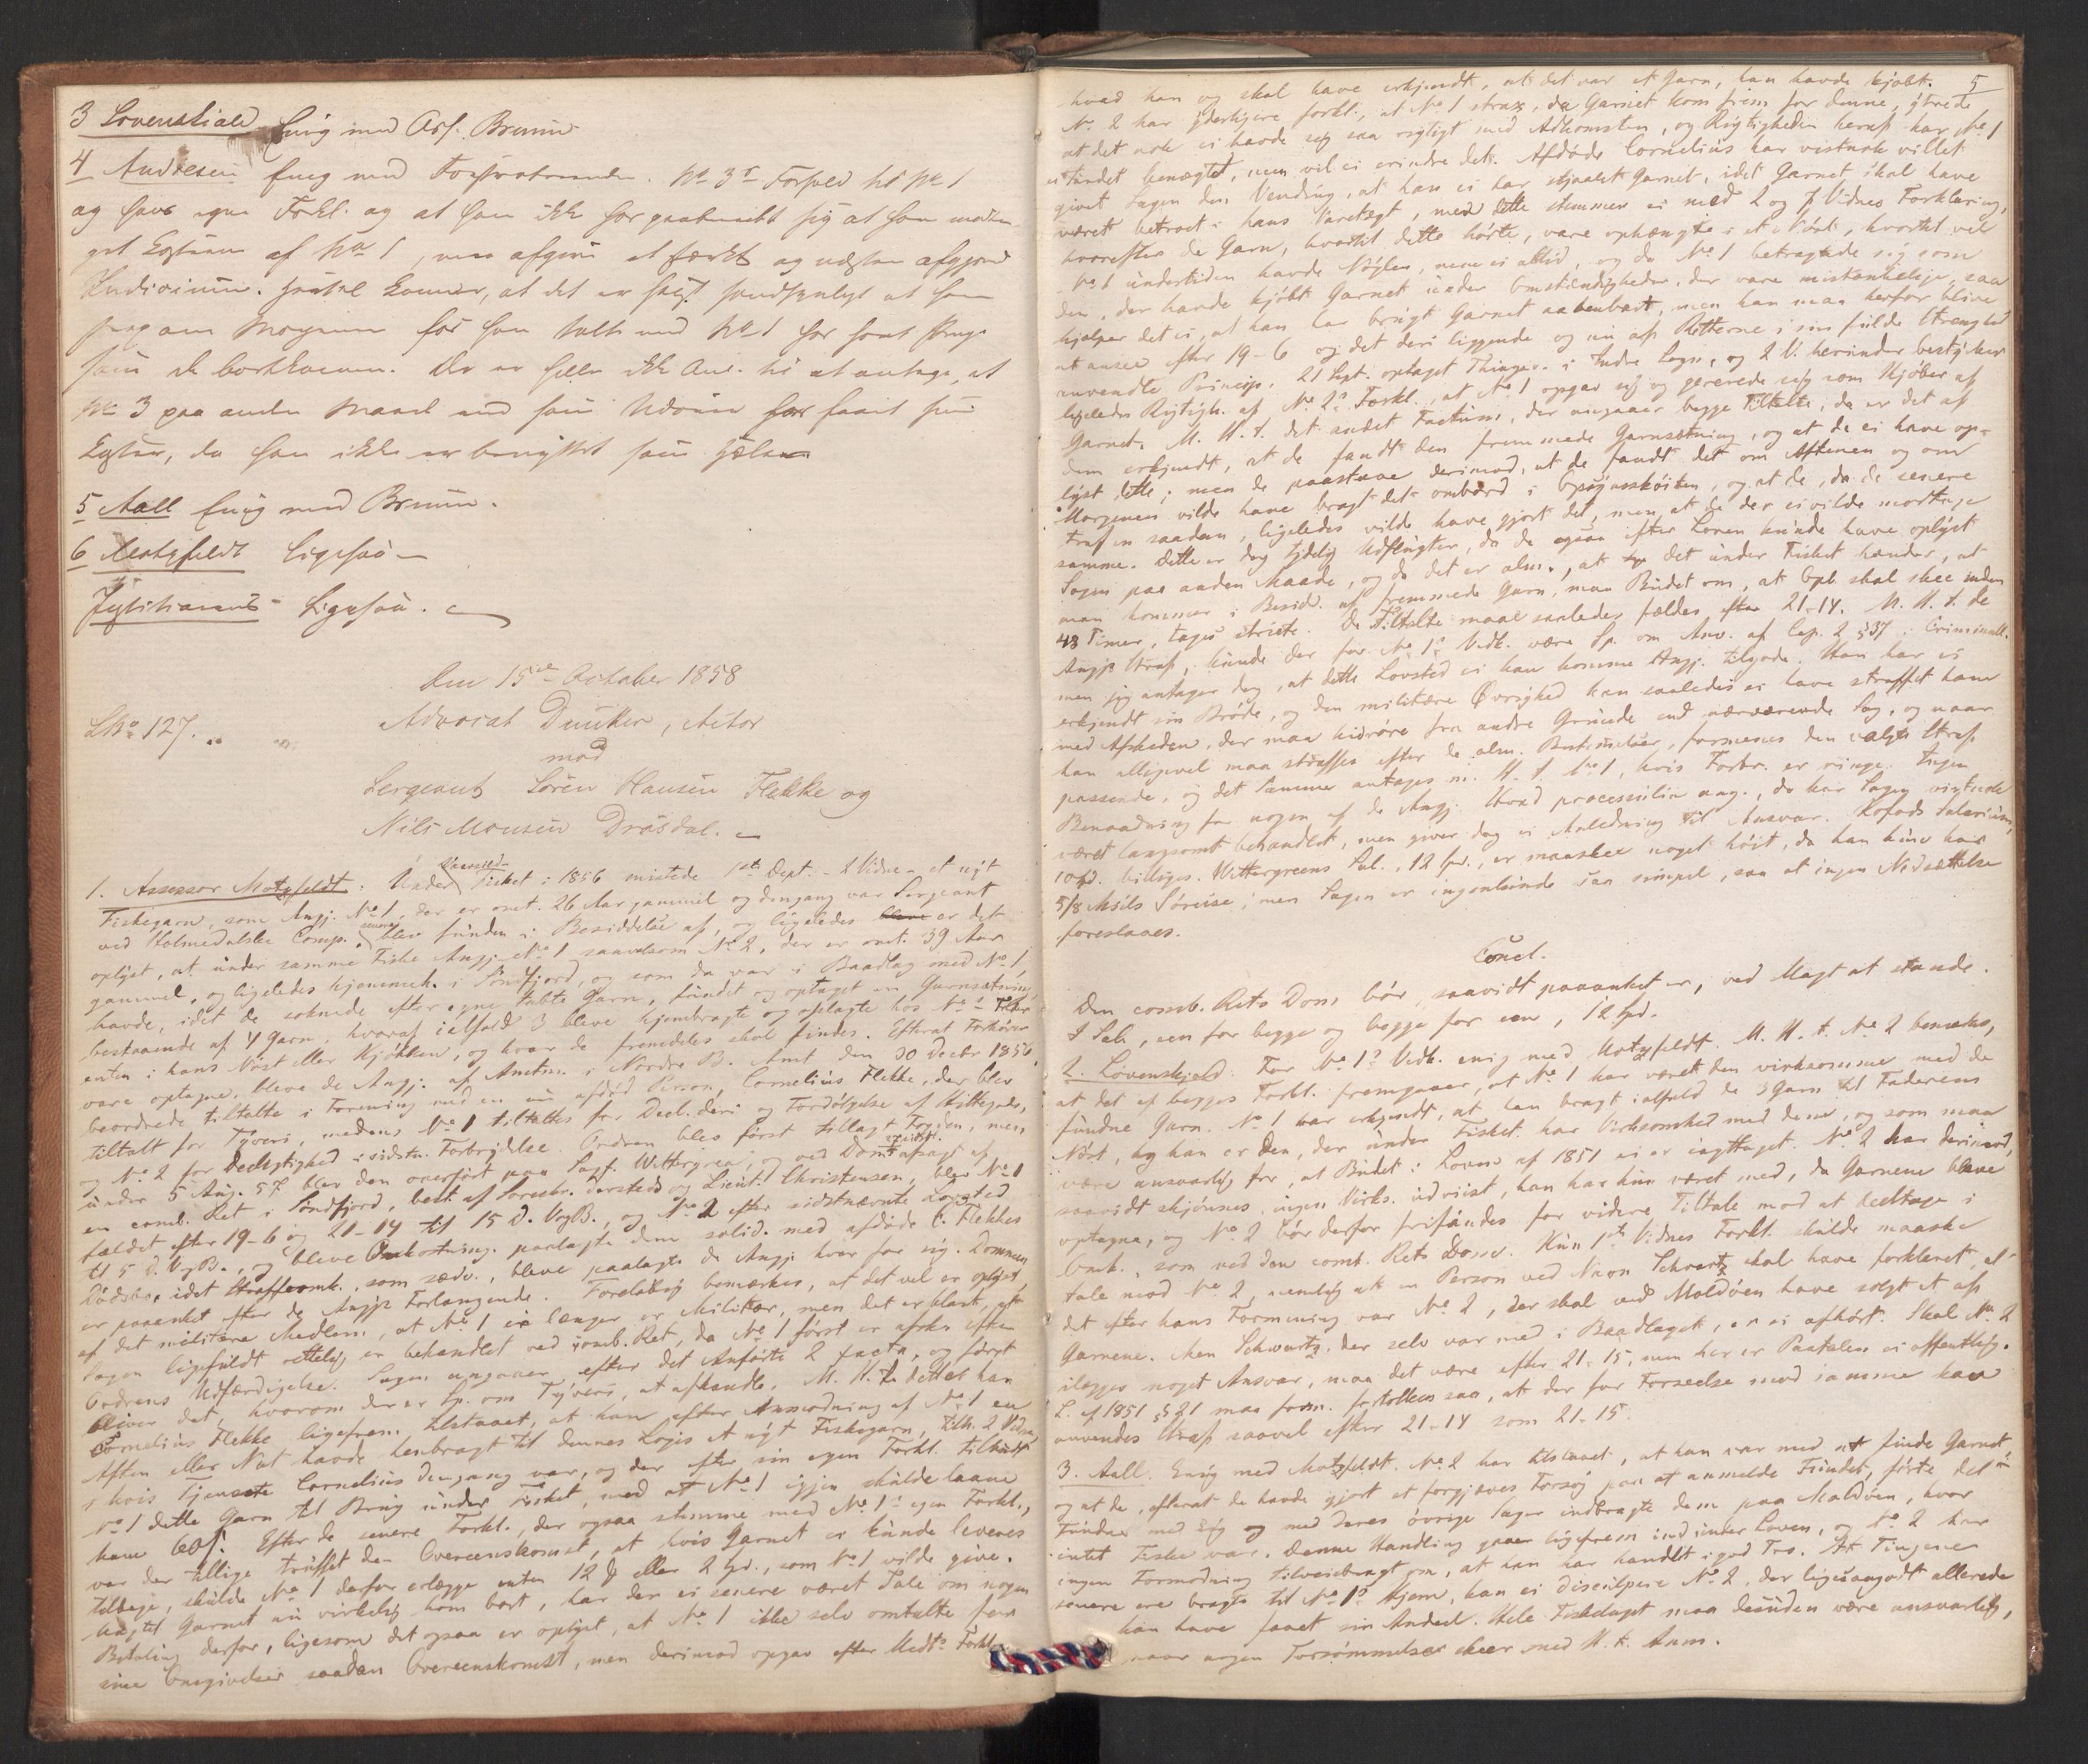 3 Lovenskiold Enig med Ass. Bruun
4 Andresen Enig med Forstvoterende. No 3s Forhold til No 1
og hans egen Forkl. og at han ikke har paaberaabt sig at han
af No 1, men afgive et særdeles og næsten afgjørende
Indicium. Hertil kommer, at det er høist sandsynligt at han
om Morgenen før han talte med No 1 har
som de bortkomne. Der er heller ikke Anl. til at antage, at
No 3 paa anden Maade end som har faaet sin
da han ikke er benyttet som
5 Aall Enig med Bruun.
6 Motzfeldt Ligesaa
Justitiarius Ligesaa.
Den 15de October 1858
LNo 127.
Advocat Dunker, Actor
mod
Sergeant Sören Hansen Flekke og
Nils Monsen Drösdal.
1. Assessor Motzfeldt: Under Vaarsild-Fisket i 1856 mistede 1ste Dept. - 2 Vidne - et nyt
Fiskegarn, som Angj. No 1, der er omt. 26 Aar gammel og dengang var Sergeant
ved Holmedalske Comp. senere blev funden i Besiddelse af, og ligeledes er det
oplyst, at under samme Fiske Angj. No 1 saavelsom No 2, der er omt. 39 Aar
gammel, og ligeledes hjemmeh. i Söndfjord, og som da var i Baadlag med No 1,
havde, idet de søknede efter egne tabte Garn, fundet og optaget en Garnsætning
bestaaende af 4 Garn, hvoraf ialfald 3 bleve hjembragte og oplagte hos No 1s Fader
enten i hans Nöst eller Kjökken, og hvor de fremdeles skal findes. Efterat Forhörer
vare optagne, bleve de Angj. af Amtm. i Nordre B. Amt den 30 Decbr 1856
beordrede tiltalte i Forening med en nu afdöd Person, Cornelius Flekke, der blev
tiltalt for Tyveri, medens No 1 tiltaltes for Deel. deri og Fordölgelse af Hittegods,
og No 2 for Deelagtighed i sidstn. Forbrydelse. Ordren blev först tillagt Fogden, men
under 5 Aug. 57 blev den overfört paa Sagf. Wittergreen, og ved Dom afsagt af
en comb. Ret i Söndfjord, best. af Sorenskr. Aarstedt og Lieut. Christensen, blev No 1
fældet efter 19-6 og 21-14 til 15 D. V og B., og No 2 efter sidstnævnte Lovsted
til 5 D. V og B., og bleve Omkostning. paalagte dem solid. med afdöde C. Flekkes
Dödsbo, idet Straffeomk., som sædv., bleve paalagte de Angj. hver for sig. Dommen
er paaanket efter de Angjs Forlangende. Foreløbig bemærkes, at det vel er oplyst,
af det militære Medlem, at No 1 ei længer er Militær, men det er klart, at
Sagen ligefuldt rettelig er behandlet ved comb. Ret, da No 1 först er afsk. efter
Ordrens Udfærdigelse. Sagen angaaer, efter det Anförte 2 facta, og först
bliver det, hvorom der er Sp. om Tyveri, at afhandle. M. H. t. dette har
Cornelius Flekke ligefrem tilstaaet, at han efter Anmodning af No 1 en
Aften eller Nat havde henbragt til dennes Logis et nyt Fiskegarn, tilh. 2 Vidne
i hvis Tjeneste Cornelius dengang var, og der efter sin egen Forkl. tilbudt
No 1 dette Garn til Brug under Fisket, mod at No 1 igjen skulde laane
ham 60 s. Efter de senere Forkl., der ogsaa stemme med No 1s egen Forkl.,
var der tillige truffet den Overeenskomst, at hvis Garnet ei kunde leveres
tilbage, skulde No 1 derfor erlægge enten 12 ⅌ eller 2 Spd., som No 1 vilde give.
Uagtet Garnet nu virkelig kom bort, har der ei senere været Tale om nogen
Betaling derfor, ligesom det ogsaa er oplyst, at No 1 ikke selv omtalte for
sine Omgivelser saadan Overeenskomst, men derimod opgav efter Medts Forkl.
5
hvad han og skal have erkjendt, at det var et Garn, han havde kjøbt.
No 2 har yderligere forkl., at No 1 strax, da Garnet kom frem for denne, ytrede
at det nok ei havde sig saa rigtigt med Adkomsten, og Rigtigheden heraf har No 1
ei fundet benægtet, men vil ei erindre det. Afdöde Cornelius har vistnok villet
givet Sagen den Vending, at han ei har stjaalet Garnet, idet Garnet skal have
været betroet i hans Varetægt, men dette stemmer ei med 2 og 7 Vidnes Forklaring,
hvorefter de Garn, hvortil dette hörte, vare ophængte i et Nöst, hvortil vel
No 1 undertiden havde Nöglen, men ei altid, og da No 1 betragtede sig som
den, der havde kjöbt Garnet under Omstændigheder, der vare mistænkelige, saa
hjelper det ei, at han har brugt Garnet aabenbart, men han maa herfor blive
at ansee efter 19-6 og det deri liggende og nu af Retterne i sin fulde Strenghed
anvendte Princip. 21 Sept. optaget Thingsv. i Indre Sogn, og 2 V. herunder bestyrker
ligeledes Rigtigh. af No 2s Forkl., at No 1 opgav sig og gererede sig som Kjöber af
Garnet. M. H. t. det andet Factum, der angaaer begge Tiltalte, da er det af
dem erkjendt, at de fandt den fremmede Garnsætning, og at de ei have op-
lyst dette; men de paastaae derimod, at de fandt det om Aftenen og om
Morgenen vilde have bragt det ombord i Opsynssköiten, og at de, da de senere
traf en saadan, ligeledes vilde have gjort det, men at de der ei vilde modtage
samme. Dette er dog tydelig Udflugter, da de ogsaa efter Loven kunde have oplyst
Sagen paa anden Maade, og da det er alm., at det under Fisket hænder, at
man kommer i Besid. af fremmede Garn, maa Budet om, at Opl. skal skee inden
48 Timer, tages stricte. De Tiltalte maae saaledes fældes efter 21-14. M. H. t. de
Angjs Straf, kunde der for No 1s Vedk. være Sp. om Anv. af Cap. 2 §37 i Criminall.
men jeg antager dog, at dette Lovsted ei kan komme Angj. tilgode. Han har ei
erkjendt sin Bröde, og den militære Övrighed kan saaledes ei have straffet ham
med Afskeden, der maa hidröre fra andre Grunde end nærværende Sag, og naar
han alligevel maa straffes efter de alm. Bestemmelser, formenes den valgte Straf
passende, og det Samme antages m. H. t. No 1, hvis Forbr. er ringe. Ingen
Benaadning for nogen af de Angj. Hvad processualia ang., da har Sagen vistnok
været langsomt behandlet, men giver dog ei Anledning til Ansvar. Kofods Salarium,
10 Spd. billiges. Wittergreens Sal., 12 Spd., er maaskee noget höit, da han kun har
5/8 Miils Söreise; men Sagen er ingenlunde saa simpel, saa at ingen Nedsættelse
foreslaaes.
Concl.
Den comb. Rets Dom bör, saavidt paaanket er, ved Magt at stande.
I Sal., een for begge og begge for een, 12 Spd.
2. Lovenskjold. For No 1s Vedk. enig med Motzfeldt. M. H. t. No 2 bemærkes,
at det af begges Forkl. fremgaaer, at No 1 har været den virksomme med de
fundne Garn. No 1 har erkjendt, at han bragt ialfald de 3 Garn til Faderens
Nöst, og han er den, der under Fisket har Virksomhed med dem, og som maa
være ansvarlig for, at Budet i Loven af 1851 ei er iagttaget. No 2 har derimod,
saavidt skjönnes, ingen Virks. udviist, han har kun været med, da Garnene bleve
optagne, og No 2 bör derfor frifindes for videre Tiltale mod at deeltage i
Omk., som ved den comb. Rets Dom. Kun 1ste Vidnes Forkl. skulde maaske
tale mod No 2, nemlig at en Person ved Navn Schwartz skal have forklaret, at
det efter hans Formening var No 2, der skal ved Moldöen have solgt et af
Garnene. Men Schwartz, der selv var med i Baadlaget, er ei afhört. Skal No 2
ilægges noget Ansvar, maa det være efter 21-15, men her er Paatalen ei offentlig.
L. af 1851 § 21 maa form. fortolkes saa, at der for Forseelse mod samme kan
anvendes Straf saavel efter 21-14 som 21-15.
3. Aall. Enig med Motzfeldt. No 2 har tilstaaet, at han var med at finde Garnet,
og at de, efterat de havde gjort et forgjæves Forsög paa at anmelde Fundet, förte det
Fundne med sig og med deres övrige Sager indbragte dem paa Moldöen, hvor
intet Fiske var. Denne Handling gaaer ligefrem ind under Loven, og No 2 har
ingen Formodning tilveiebragt om, at han har handlet i god Tro. At Tingene
senere ere bragte til No 1s Hjem, kan ei disculpere No 2, der ligesaagodt allerede
kan have faaet sin Andeel. Hele Fiskelaget maa desuden være ansvarlig,
naar nogen Forsömmelse skeer med H. t. Anm.